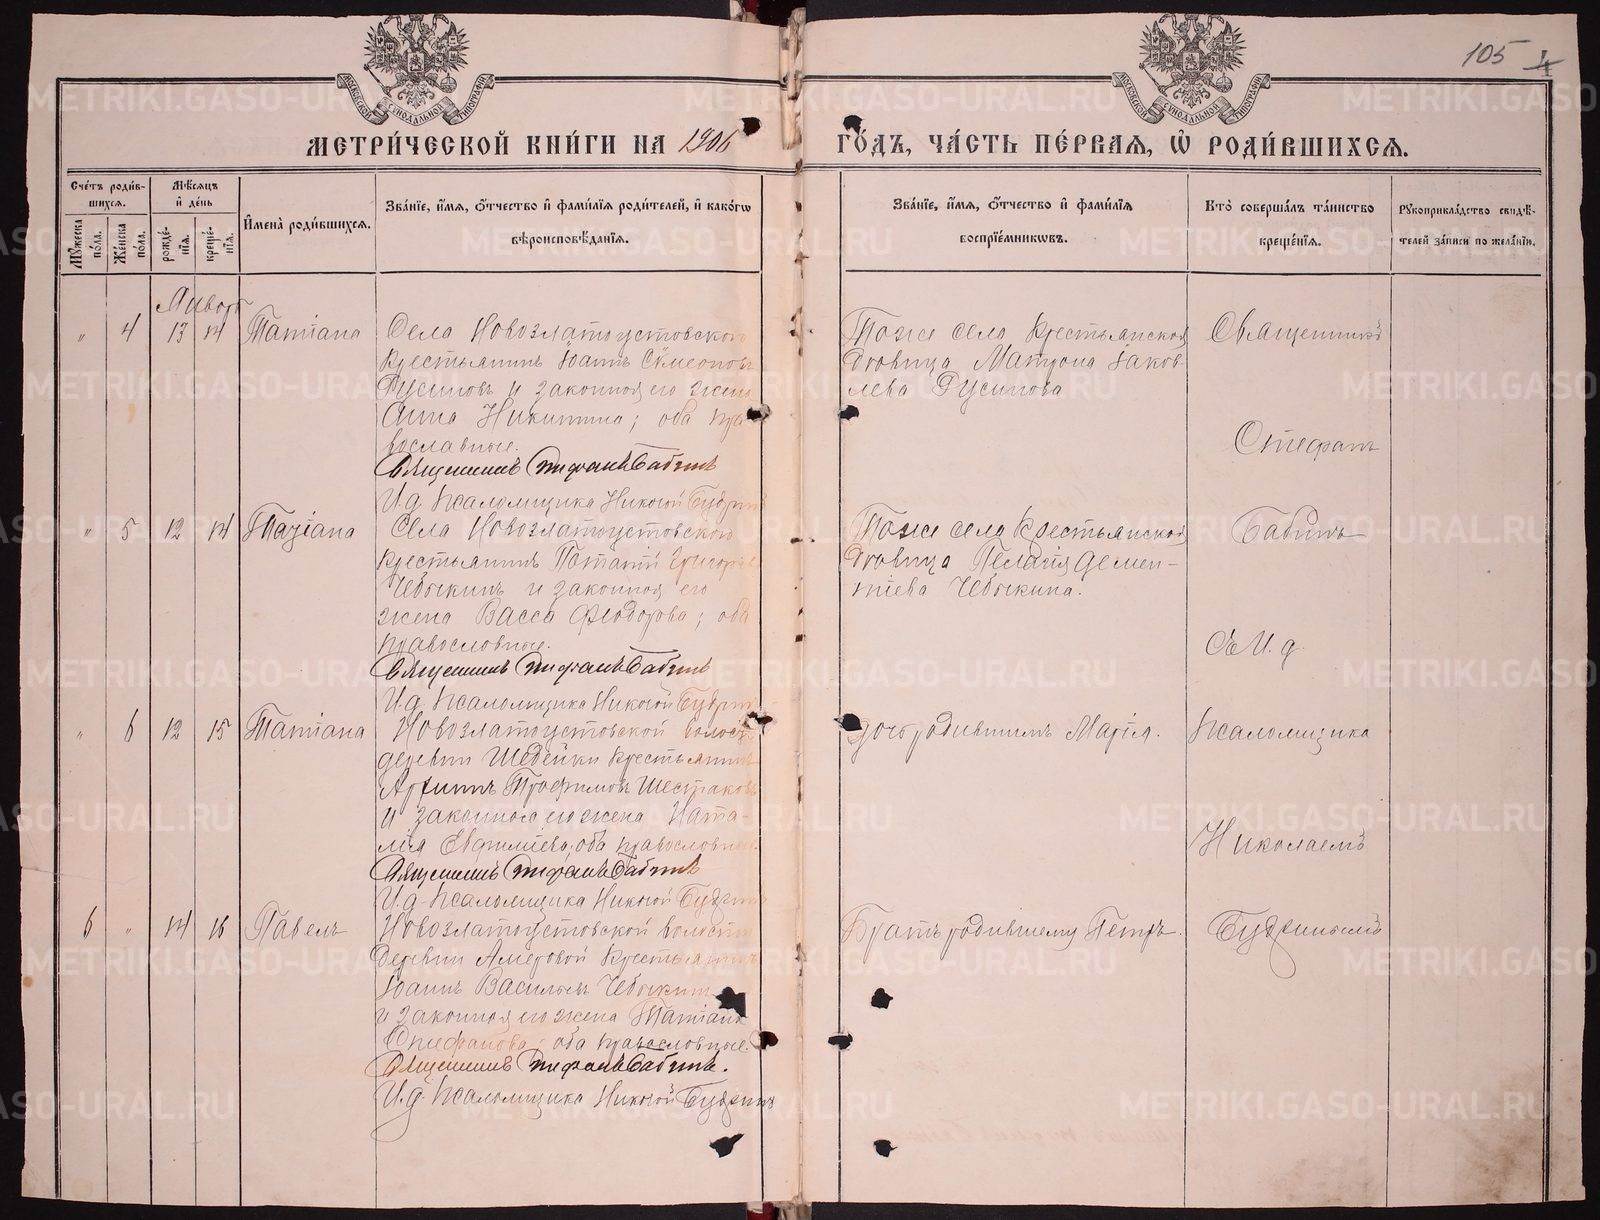 105
МОСКОВСКОЙ СИНОДАЛЬНОЙ ТИПОГРАФІИ
МОСКОВСКОЙ СИНОДАЛЬНОЙ ТИПОГРАФІИ
МЕТРИ́ЧЕСКОЙ КНИ́ГИ НА 1906
ГО́ДЪ, ЧА́СТЬ ПЕ́РВАЯ, Ѡ РОДИ́ВШИХСЯ.
Сче́тъ роди́в-
шихся.
Мѣ́сяцъ
и҆ де́нь
Мꙋ́жеска по́ла.
Же́нска по́ла.
рожде́-нїѧ.
креще́-нїѧ.
И҆мена̀ роди́вшихся.
Зва́нїе, и҆́мя, ѻ҆́тчество и҆ фами́лїя роди́телей, и҆ како́гѡ
вѣроисповѣ́данїя.
Зва́нїе, и҆́мя, ѻ҆́тчество и҆ фами́лїя
воспрїе́мникѡвъ.
Кто̀ соверша́лъ та́инство
креще́нїя.
Рꙋкоприкла́дство свидѣ́-
телей за́писи по жела́нїю.
Январь
" 4 13 14 Татіана
Села Новозлатоустовского
крестьянинъ Іоаннъ Сѵмеоновъ
Русиновъ и законная его жена
Анна Никитина; оба пра-
вославные.
Священникъ Стефанъ Бабинъ
И.д. псаломщика Николай
Тоже села крестьянская
дѣвица Матрона Іаков-
лева Русинова
Священникъ
Стефанъ
" 5 12 14 Татіана
Села Новозлатоустовского
крестьянинъ Потапій Григорьевъ
Чебыкинъ и законная его
жена Васса Феодорова; оба
православные.
Священникъ Стефанъ Бабинъ
И.д. псаломщика Николай
Тоже села крестьянская
дѣвица Пелагія Демен-
тіева Чебыкина.
Бабинъ
съ И.д.
" 6 12 15 Татіана
Новозлатоустовской волости
деревни Шебейки крестьянинъ
Архипъ Трофимовъ Шестаковъ
и законная его жена Ната-
лія Евфиміева; оба православные.
Священникъ Стефанъ Бабинъ
И.д. псаломщика Николай
родившимъ Марія.
псаломщика
Николаемъ
6 " 14 16 Павелъ
Новозлатоустовской волости
деревни Амеровой крестьянинъ
Іоаннъ Васильевъ Чебыкинъ
и законная его жена Татіана
Стефанова; оба православные.
Священникъ Стефанъ Бабинъ.
И.д. псаломщика Николай
Братъ родившему Петръ.
METRIKI.GASO-URAL.RU